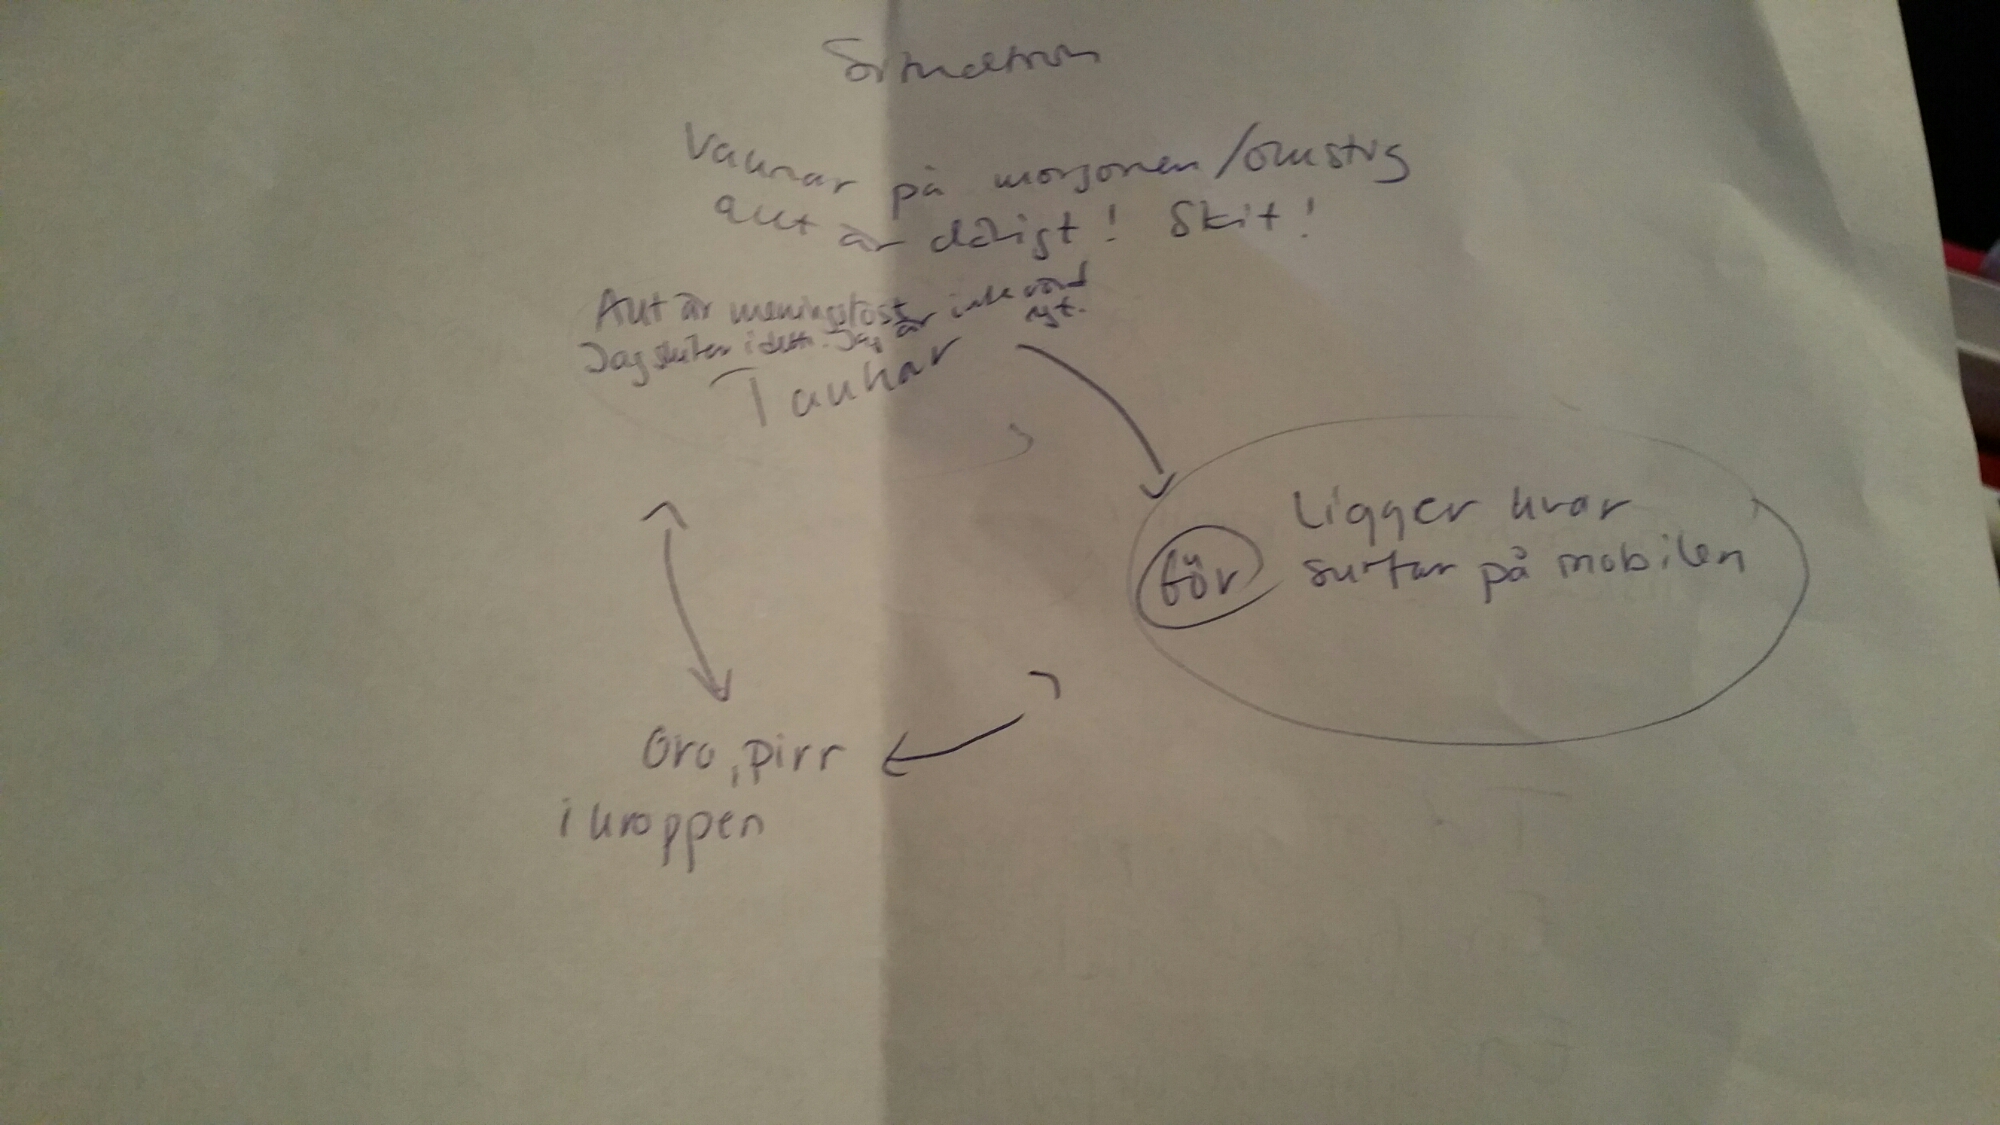 Situation
Vaknar på morgonen/
allt är dåligt! Skit!
Allt är meningslöst
Jag är inte värd
Tankar
Ligger kvar
Gör surfar på mobilen
Oro, pirr
i kroppen